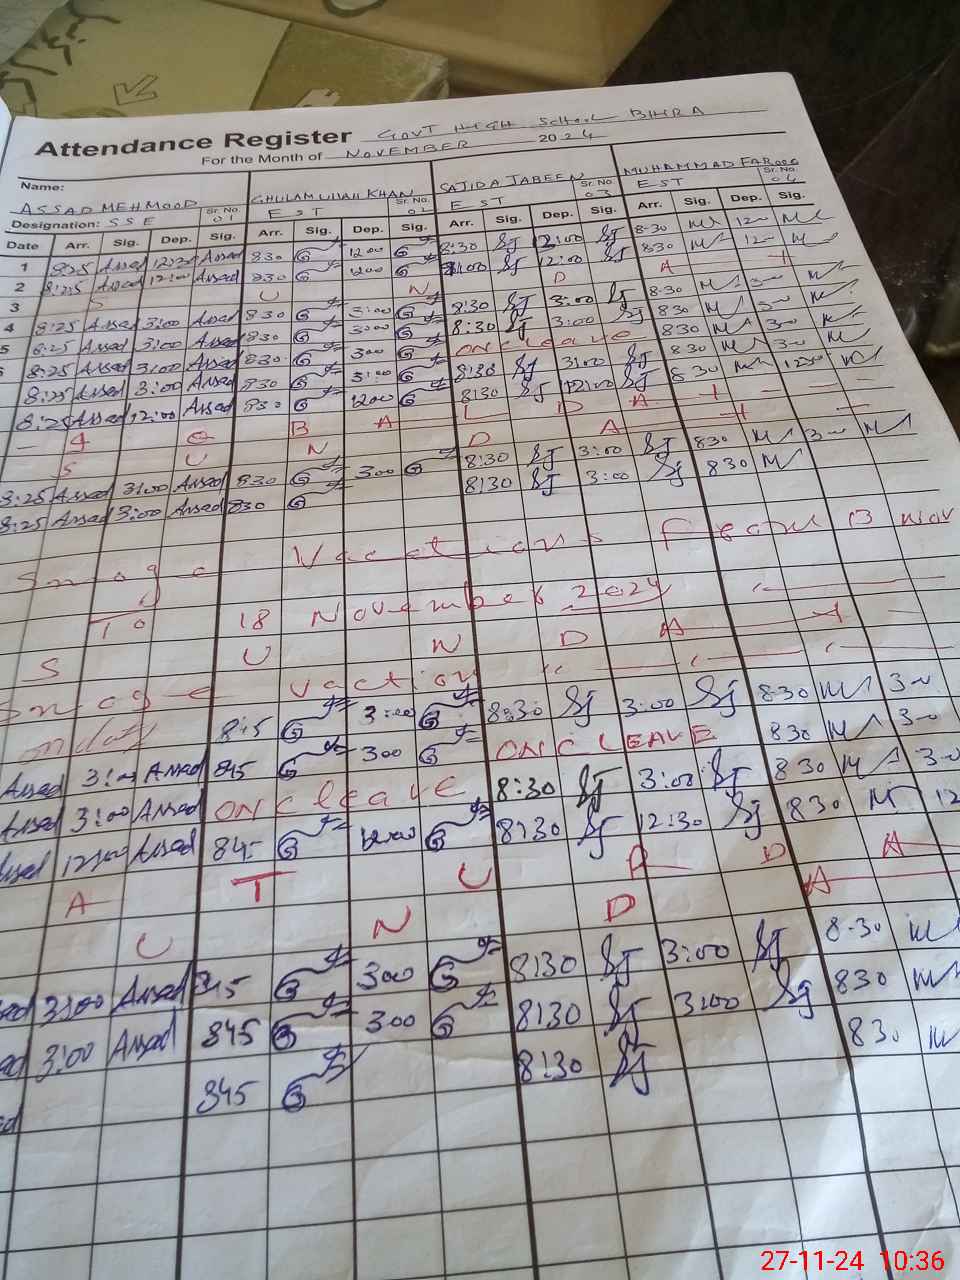 Attendance Register GOVT HIGH School BHRA
For the Month of NOVEMBER 2024
Name: ASSAD MEHMOOD GHULAM ULLAH KHAN SAJIDA JABEEN MUHAMMAD FAROOQ
Designation: SSE Sr. No. 01 EST Sr. No. 02 EST Sr. No. 03 EST Sr. No. 04
Date Arr. Sig. Dep. Sig. Arr. Sig. Dep. Sig. Arr. Sig. Dep. Sig. Arr. Sig. Dep. Sig.
1 8:25 Assad 12:30 Assad 830 1200 8:30 Sj 12:00 Sj 8-30 12-
2 8:25 Assad 12:00 Assad 830 1200 Sj 12:00 Sj 830 12-
3 S U N D A Y
4 8:25 Assad 3:00 Assad 830 3:00 8:30 Sj 3:00 Sj 8-30 3-
5 8:25 Assad 3:00 Assad 830 3:00 8:30 Sj 3:00 Sj 830 3-
8:25 Assad 3:00 Assad 830 300 ON C leave 830 3-
8:25 Assad 3:00 Assad 830 3:00 8:30 Sj 3:00 Sj 830 3-
8:25 Assad 12:00 Assad 830 1200 8:30 Sj 12:00 Sj 830 12-
B A L D A Y
S U N D A Y
8:25 Assad 3:00 Assad 830 300 8:30 Sj 3:00 Sj 830 3-
8:25 Assad 3:00 Assad 830 8:30 Sj 3:00 Sj 830
Smoge Vacctions From 13 nov
To 18 November 2024
S U N D A Y
Smoge vaction
8:45 3:00 8:30 Sj 3:00 Sj 830 3-
Assad 3:00 Assad 845 300 ON C LEAVE 830 3-
Assad 3:00 Assad ON C leave 8:30 Sj 3:00 Sj 830 3-
Assad 12:00 Assad 845 12:00 8:30 Sj 12:30 Sj 830 12
A T U R D A
U N D A
3:00 Assad 845 300 8:30 Sj 3:00 Sj 8-30
3:00 Assad 845 300 8:30 Sj 3:00 Sj 830
845 8:30 Sj 830
27-11-24 10:36